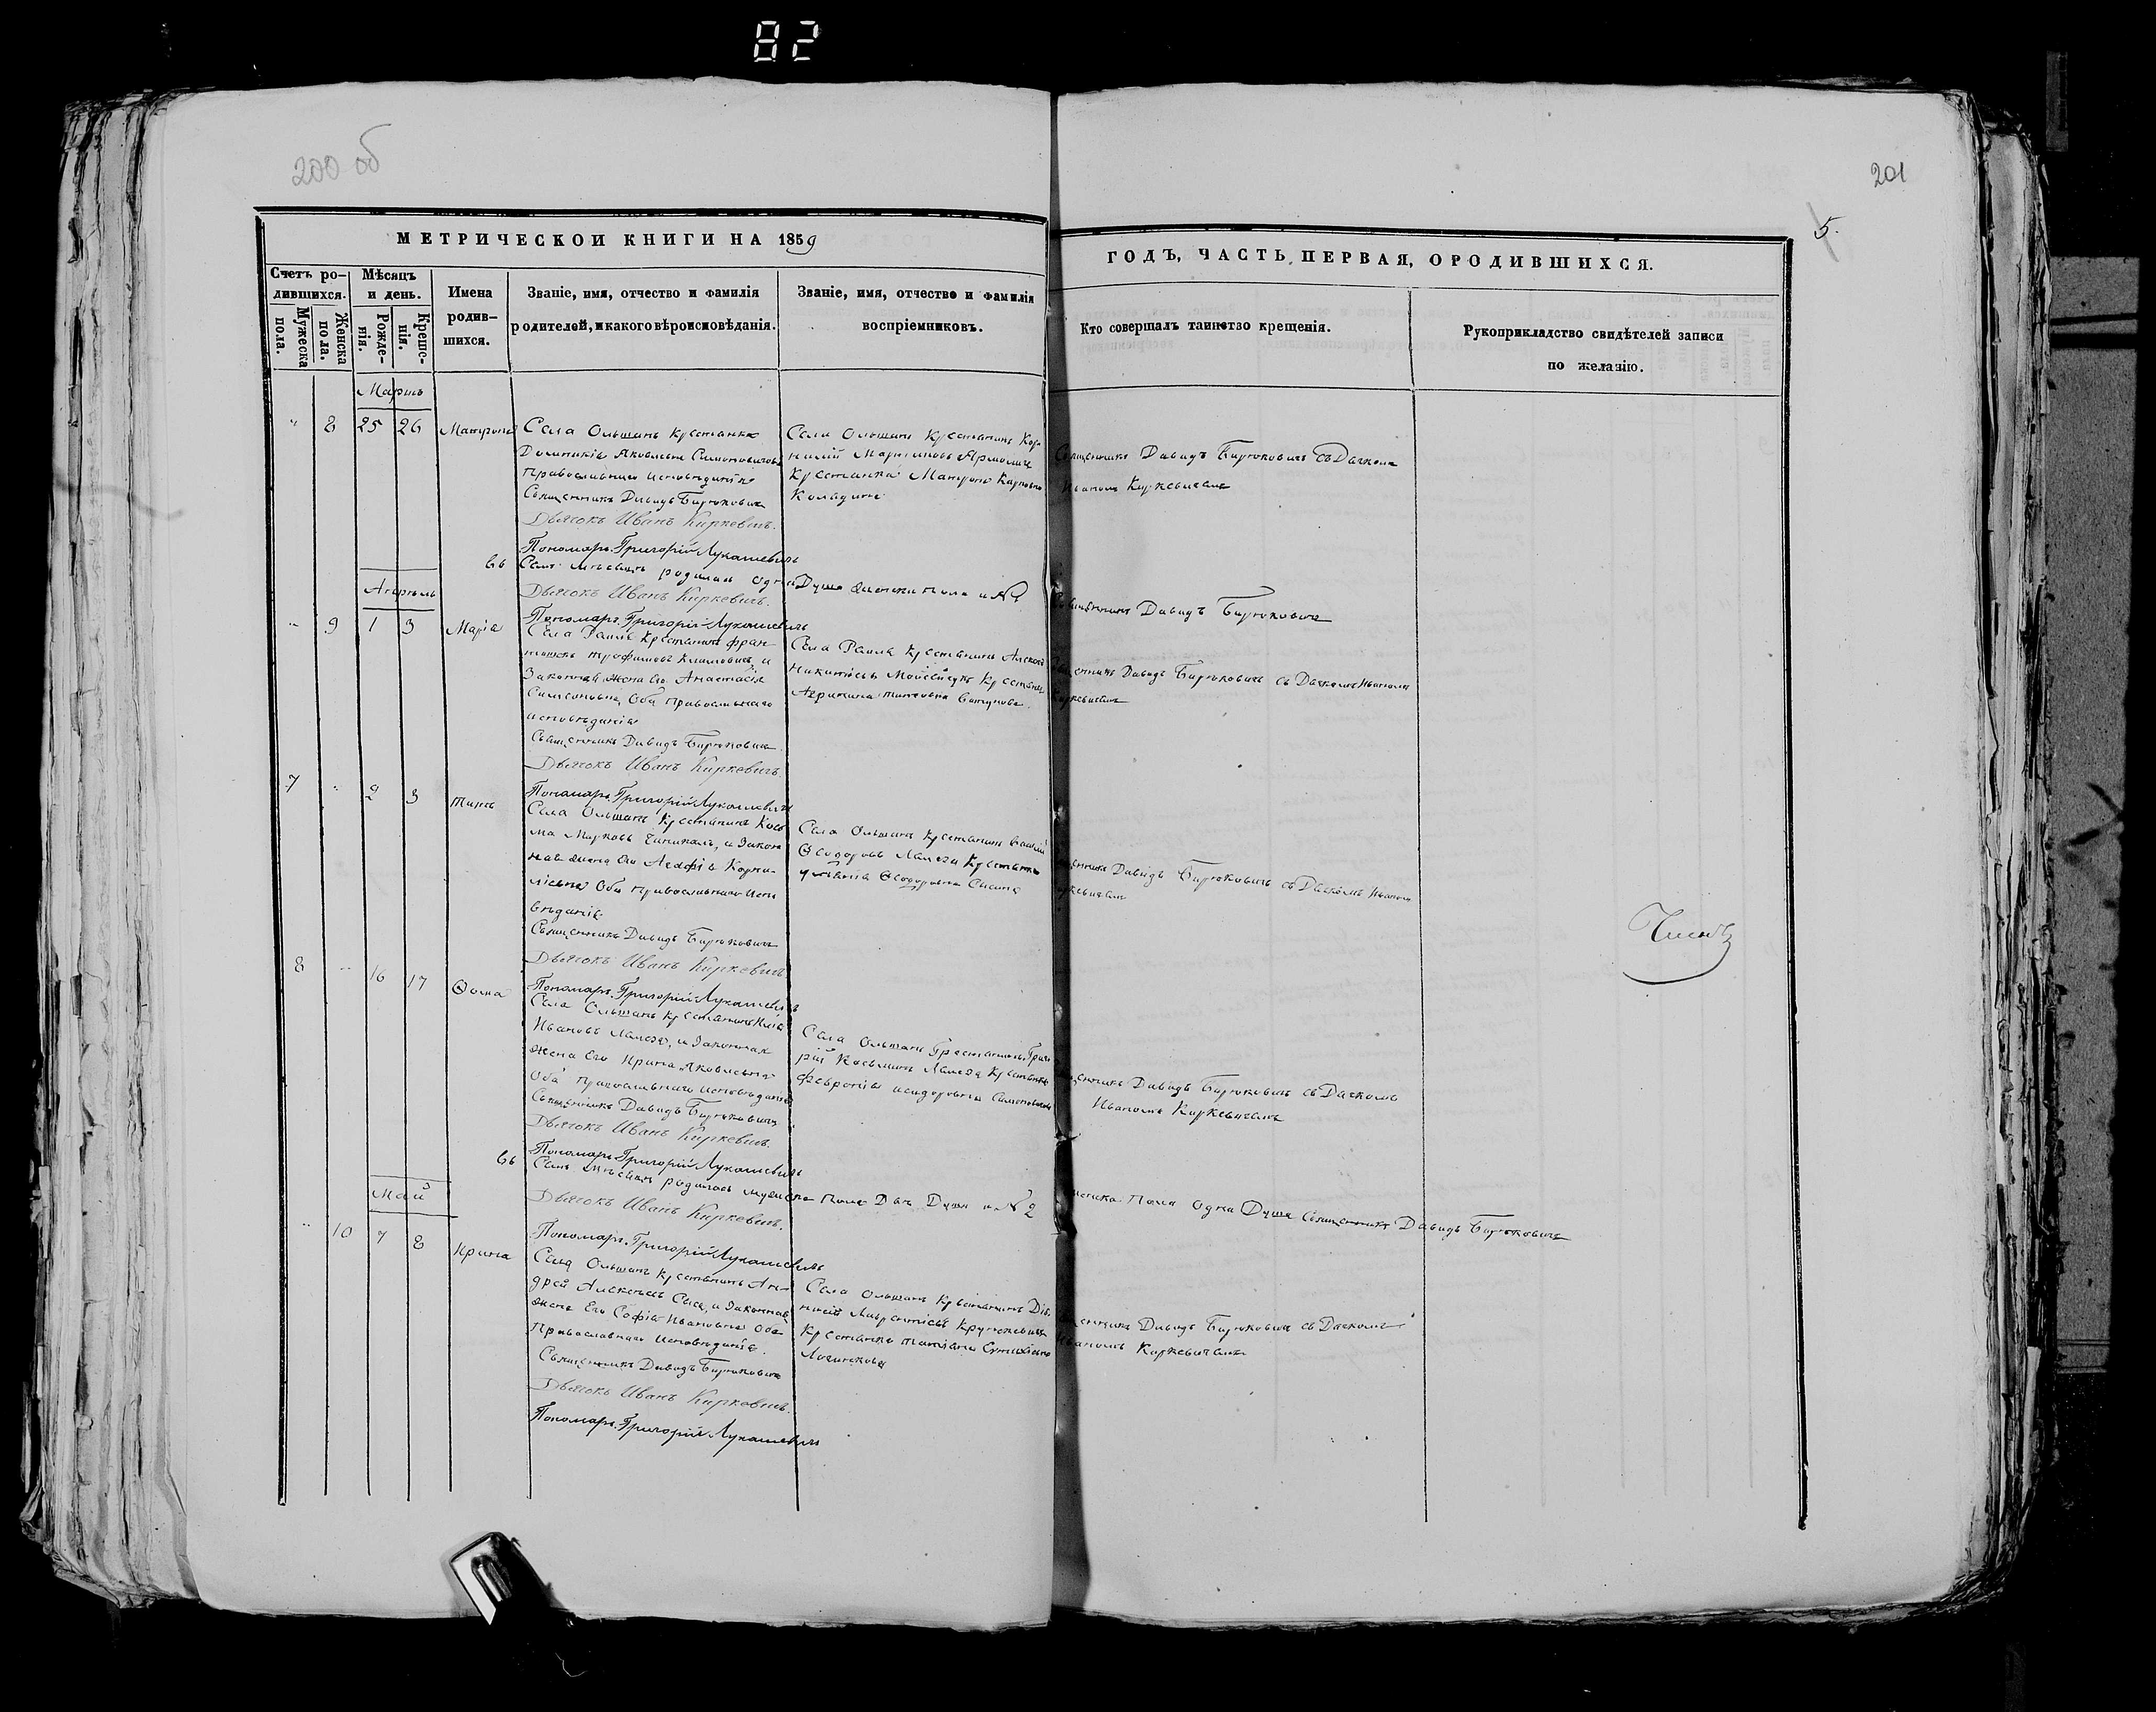 82
200 об
201
5.
МЕТРИЧЕСКОЙ КНИГИ НА 1859
ГОДЪ, ЧАСТЬ ПЕРВАЯ, ОРОДИВШИХСЯ.
Счетъ ро-
дившихся.
Мужеска
пола.
Женска
пола.
Мѣсяцъ
и день.
Рожде-
нія.
Креще-
нія.
Имена
родив-
шихся.
Званіе, имя, отчество и фамилія
родителей, и какого вѣроисповѣданія.
Званіе, имя, отчество и фамилія
воспріемниковъ.
Кто совершалъ таинство крещенія.
Рукоприкладство свидѣтелей записи
по желанію.
Мартъ
" 8 25 26 Матрона
Села Ольшанъ Крестьянка
Доминикія Яковлева Симоновичова
Православнаго исповѣданія
Священникъ Давидъ Бирюковичъ
Дьячокъ Иванъ Киркевичъ.
Пономарь Григорій Лукашевичъ
Села Ольшанъ Крестьянинъ Кор-
нилій Мартиновъ Ярмоличъ
Крестьянка Матрона Карповна
Священникъ Давидъ Бирюковичъ съ Дьячкомъ
Иваномъ Киркевичемъ
Въ Семъ мѣсяцѣ родилась одна Душа Женска Пола и №1
Священникъ Давидъ Бирюковичъ
Дьячокъ Иванъ Киркевичъ.
Пономарь Григорій Лукашевичъ
Апрѣль
" 9 1 3 Марія
Села Крестьянинъ Фран-
Трофимовъ Климовичъ, и
Законная жена Его Анастасія
Симеоновна, Оба Православнаго
исповѣданія
Священникъ Давидъ Бирюковичъ.
Дьячокъ Иванъ Киркевичъ.
Пономарь Григорій Лукашевичъ
Села Крестьянинъ Алексѣй
Никитіевъ Крестьянка
Титовна
Священникъ Давидъ Бирюковичъ съ Дьячкомъ Иваномъ
Киркевичемъ
7 " 2 3 Титъ
Села Ольшанъ Крестьянинъ Кось-
ма Марковъ и Закон-
ная жена Его Агафія Корни-
ліевна Оба Православнаго Испо-
вѣданія
Священникъ Давидъ Бирюковичъ
Дьячокъ Иванъ Киркевичъ
Пономарь Григорій Лукашевичъ
Села Ольшанъ Крестьянинъ
Ѳеодоровъ Крестьянка
Ѳеодоровна
Священникъ Давидъ Бирюковичъ съ Дьячкомъ Иваномъ
Киркевичемъ
8 " 16 17 Ѳома
Села Ольшанъ Крестьянинъ
Ивановъ и Законная
жена Его Ирина Яковлевна
Оба Православнаго исповѣданія
Священникъ Давидъ Бирюковичъ
Дьячокъ Иванъ Киркевичъ.
Пономарь Григорій Лукашевичъ
Села Ольшанъ Крестьянинъ Григо-
рій Косьминъ Крестьянка
Февронія Исидоровна
Священникъ Давидъ Бирюковичъ съ Дьячкомъ
Иваномъ Киркевичемъ
Въ Семъ мѣсяцѣ родилось мужеска Пола Двѣ Души и №2 Женска Пола Одна Душа Священникъ Давидъ Бирюковичъ
Дьячокъ Иванъ Киркевичъ.
Пономарь Григорій Лукашевичъ
Май
" 10 7 8 Ирина
Села Ольшанъ Крестьянинъ Ан-
дрей Алексѣевъ и Законная
жена Его Софія Ивановна Оба
Православнаго Исповѣданія.
Священникъ Давидъ Бирюковичъ
Дьячокъ Иванъ Киркевичъ.
Пономарь Григорій Лукашевичъ
Села Ольшанъ Крестьянинъ
Лаврентіевъ
Крестьянка Татіана
Священникъ Давидъ Бирюковичъ съ Дьячкомъ
Иваномъ Киркевичемъ